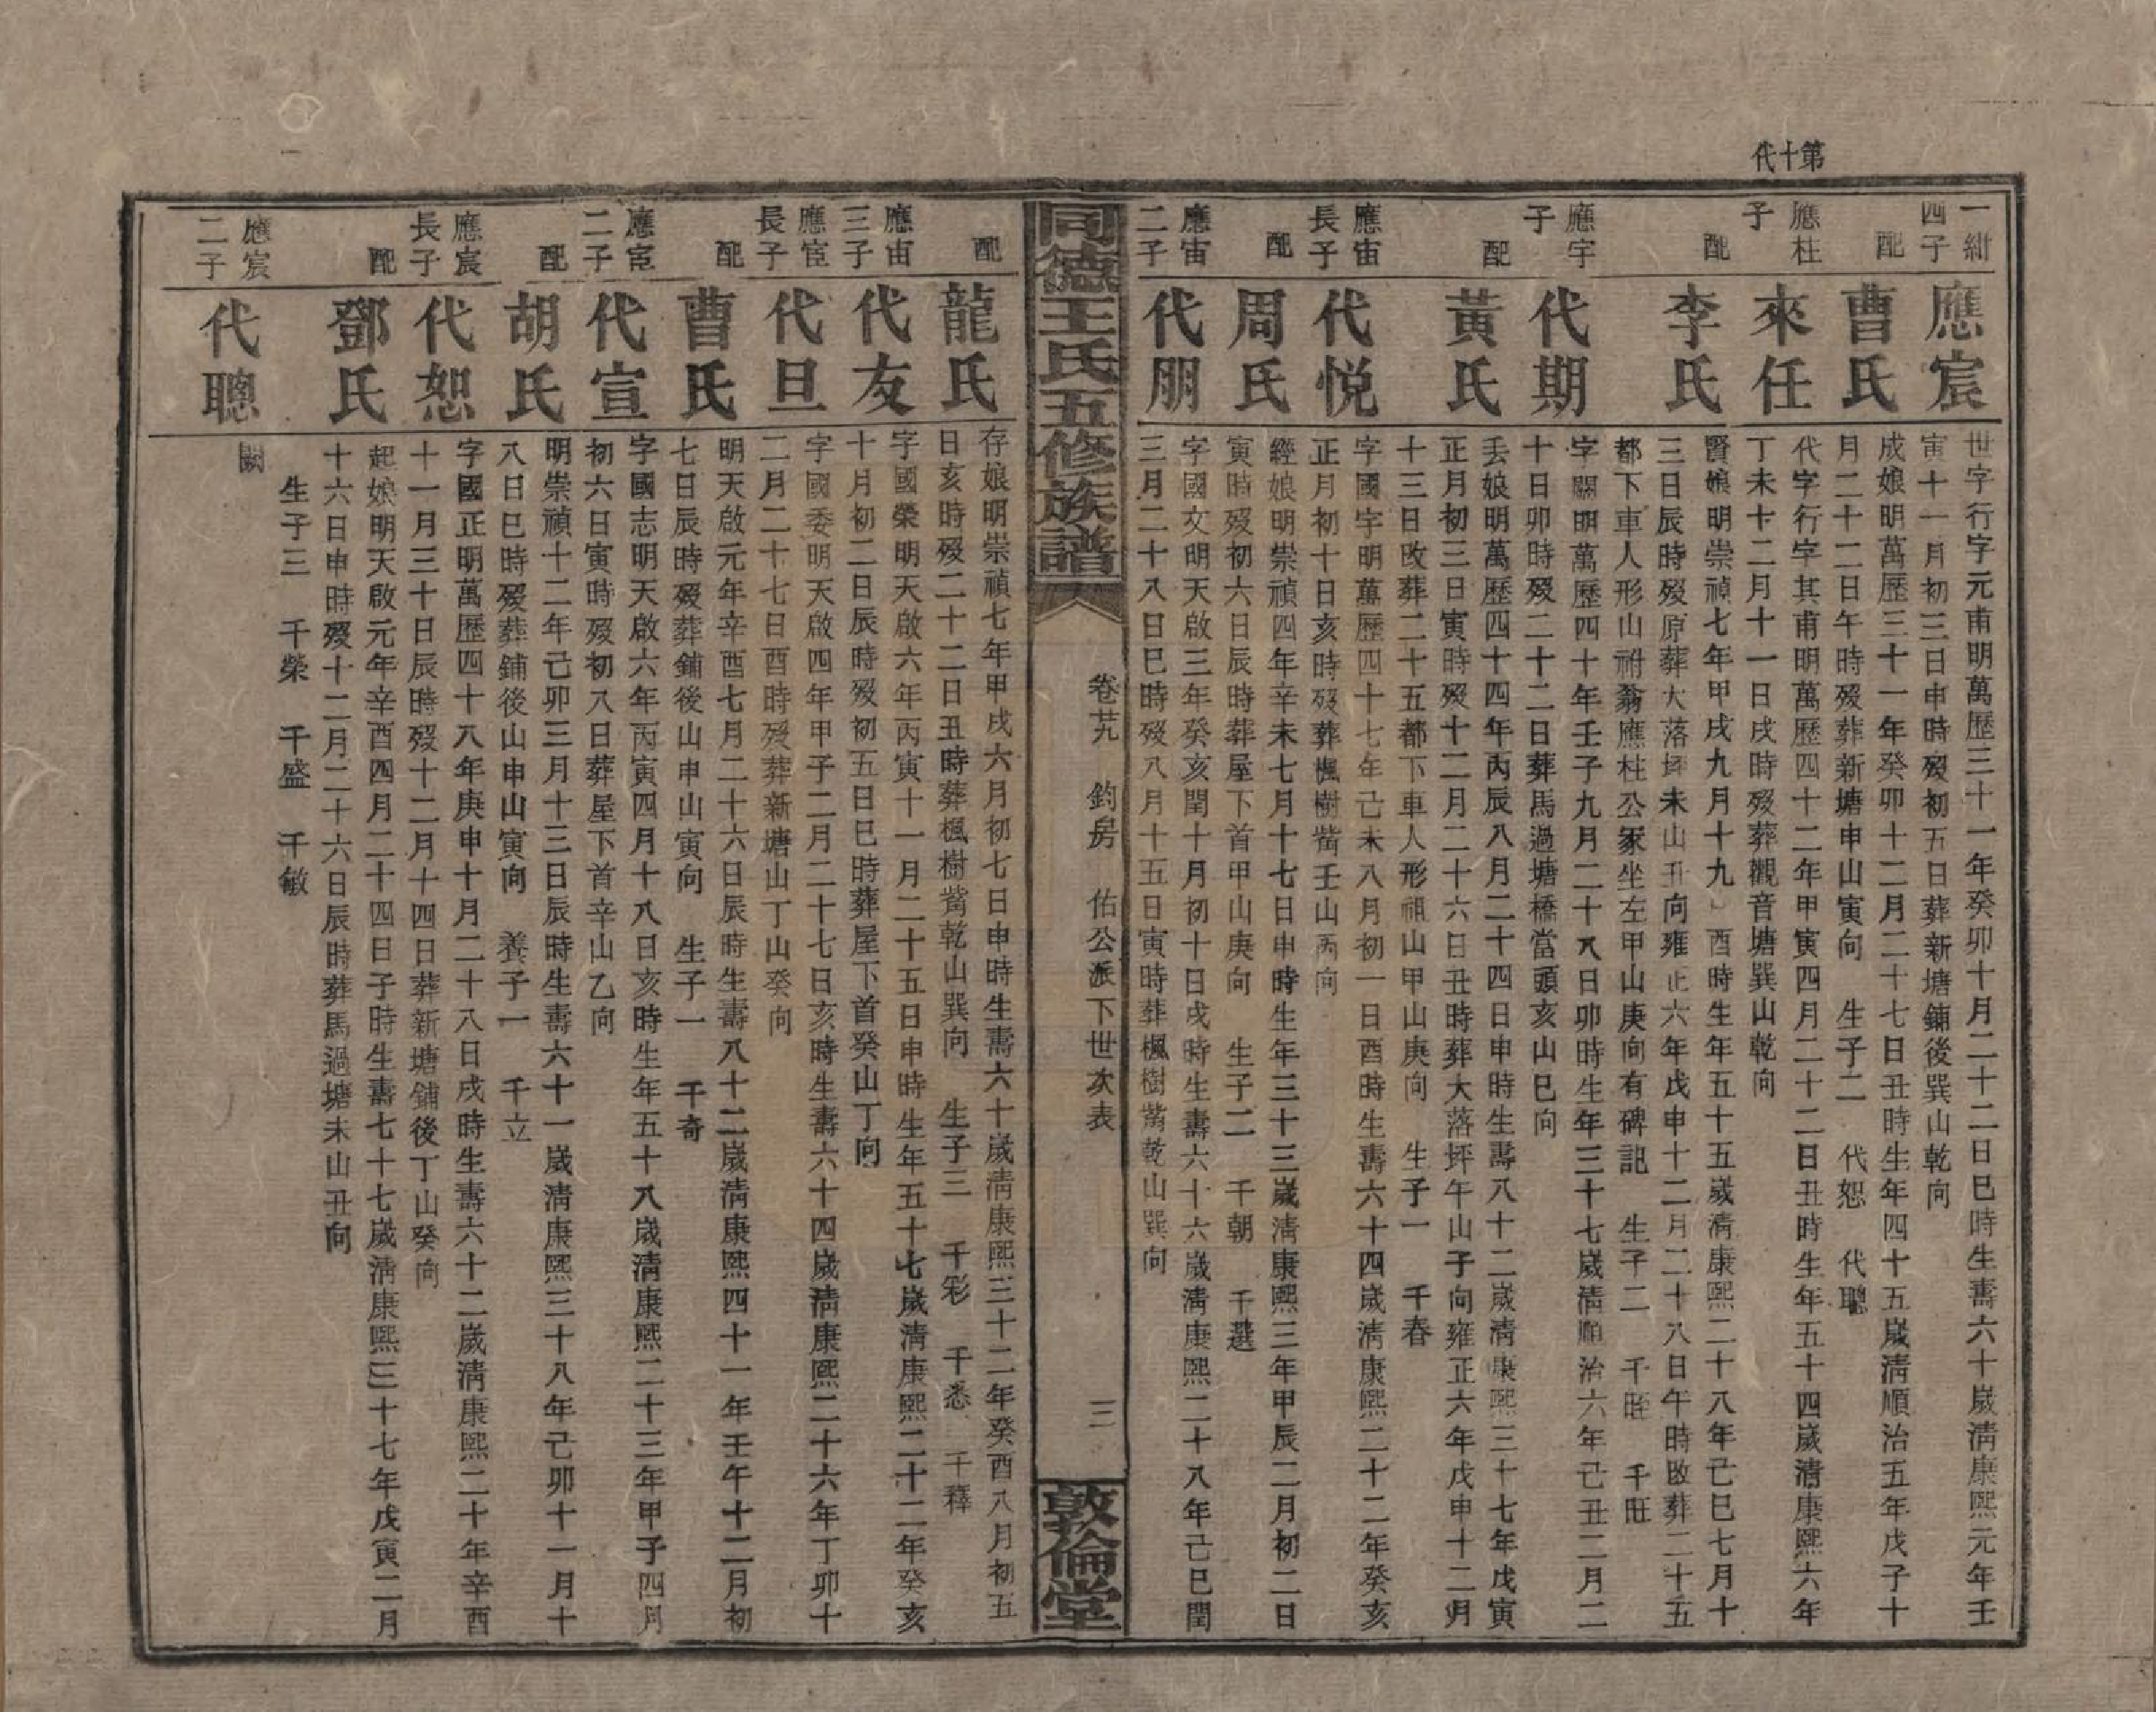 第十代
一紺四子
應宸
世字行字元甫明萬歷三十一年癸卯十月二十二日巳時生壽六十歲淸康熙元年壬
寅十一月初三日申時歿初五日葬新塘鋪後巽山乾向
配
曹氏
成娘明萬歷三十一年癸卯十二月二十七日丑時生年四十五歲淸順治五年戊子十
月二十二日午時歿葬新塘申山寅向 生子二 代恕 代聰
應柱子
來任
代字行字其甫明萬歷四十二年甲寅四月二十二日丑時生年五十四歲淸康熙六年
丁未十二月十一日戌時歿葬觀音塘巽山乾向
配
李氏
賢娘明崇禎七年甲戌九月十九 酉時生年五十五歲淸康熙二十八年己巳七月十
三日辰時歿原葬大落坪未山丑向雍正六年戊申十二月二十八日午時改葬二十五
都下車人形山祔翁應柱公冢坐左甲山庚向有碑記 生子二 千旺
應宇子
代期
字闕明萬歷四十年壬子九月二十八日卯時生年三十七歲淸順治六年己丑二月二
十日卯時歿二十二日葬馬過塘橋當頭亥山巳向
配
黃氏
丢娘明萬歷四十四年丙辰八月二十四日申時生壽八十二歲淸康熙三十七年戊寅
正月初三日寅時歿十二月二十六日丑時葬大落坪午山子向雍正六年戊申十二月
十三日改葬二十五都下車人形祖山甲山庚向 生子一 千春
應宙長子
代悅
字國字明萬歷四十七年己未八月初一日酉時生壽六十四歲淸康熙二十二年癸亥
正月初十日亥時歿葬楓樹嵛壬山丙向
配
周氏
經娘明崇禎四年辛未七月十七日申時生年三十三歲淸康熙三年甲辰二月初二日
寅時歿初六日辰時葬屋下首甲山庚向 生子二 千朝 千選
應宙二子
代朋
字國文明天啟三年癸亥閏十月初十日戌時生壽六十六歲淸康熙二十八年己巳閏
三月二十八日巳時歿八月十五日寅時葬楓樹嵛乾山巽向
同德王氏五修族譜
卷廿九 鈞房 佑公派下世次表
三
敦倫堂
配
龍氏
存娘明崇禎七年甲戌六月初七日申時生壽六十歲淸康熙三十二年癸酉八月初五
日亥時歿二十二日丑時葬楓樹嵛乾山巽向 生子三 千彩 千悉 千釋
應宙三子
代友
字國榮明天啟六年丙寅十一月二十五日申時生年五十七歲淸康熙二十二年癸亥
十月初二日辰時歿初五日巳時葬屋下首癸山丁向
應宦長子
代旦
字國委明天啟四年甲子二月二十七日亥時生壽六十四歲淸康熙二十六年丁卯十
二月二十七日酉時歿葬新塘山丁山癸向
配
曹氏
明天啟元年辛酉七月二十六日辰時生壽八十二歲淸康熙四十一年壬午十二月初
七日辰時歿葬鋪後山申山寅向 生子一 千奇
應宦二子
代宣
字國志明天啟六年丙寅四月十八日亥時生年五十八歲淸康熙二十三年甲子四月
初六日寅時歿初八日葬屋下首辛山乙向
配
胡氏
明崇禎十二年己卯三月十三日辰時生壽六十一歲淸康熙三十八年己卯十一月十
八日巳時歿葬鋪後山申山寅向 養子一 千立
應宸長子
代恕
字國正明萬歷四十八年庚申十月二十八日戌時生壽六十二歲淸康熙二十年辛酉
十一月三十日辰時歿十二月十四日葬新塘鋪後丁山癸向
配
鄧氏
起娘明天啟元年辛酉四月二十四日子時生壽七十七歲淸康熙三十七年戊寅二月
十六日申時歿十二月二十六日辰時葬馬過塘未山丑向
生子三 千榮 千盛 千敏
應宸二子
代聰
闕